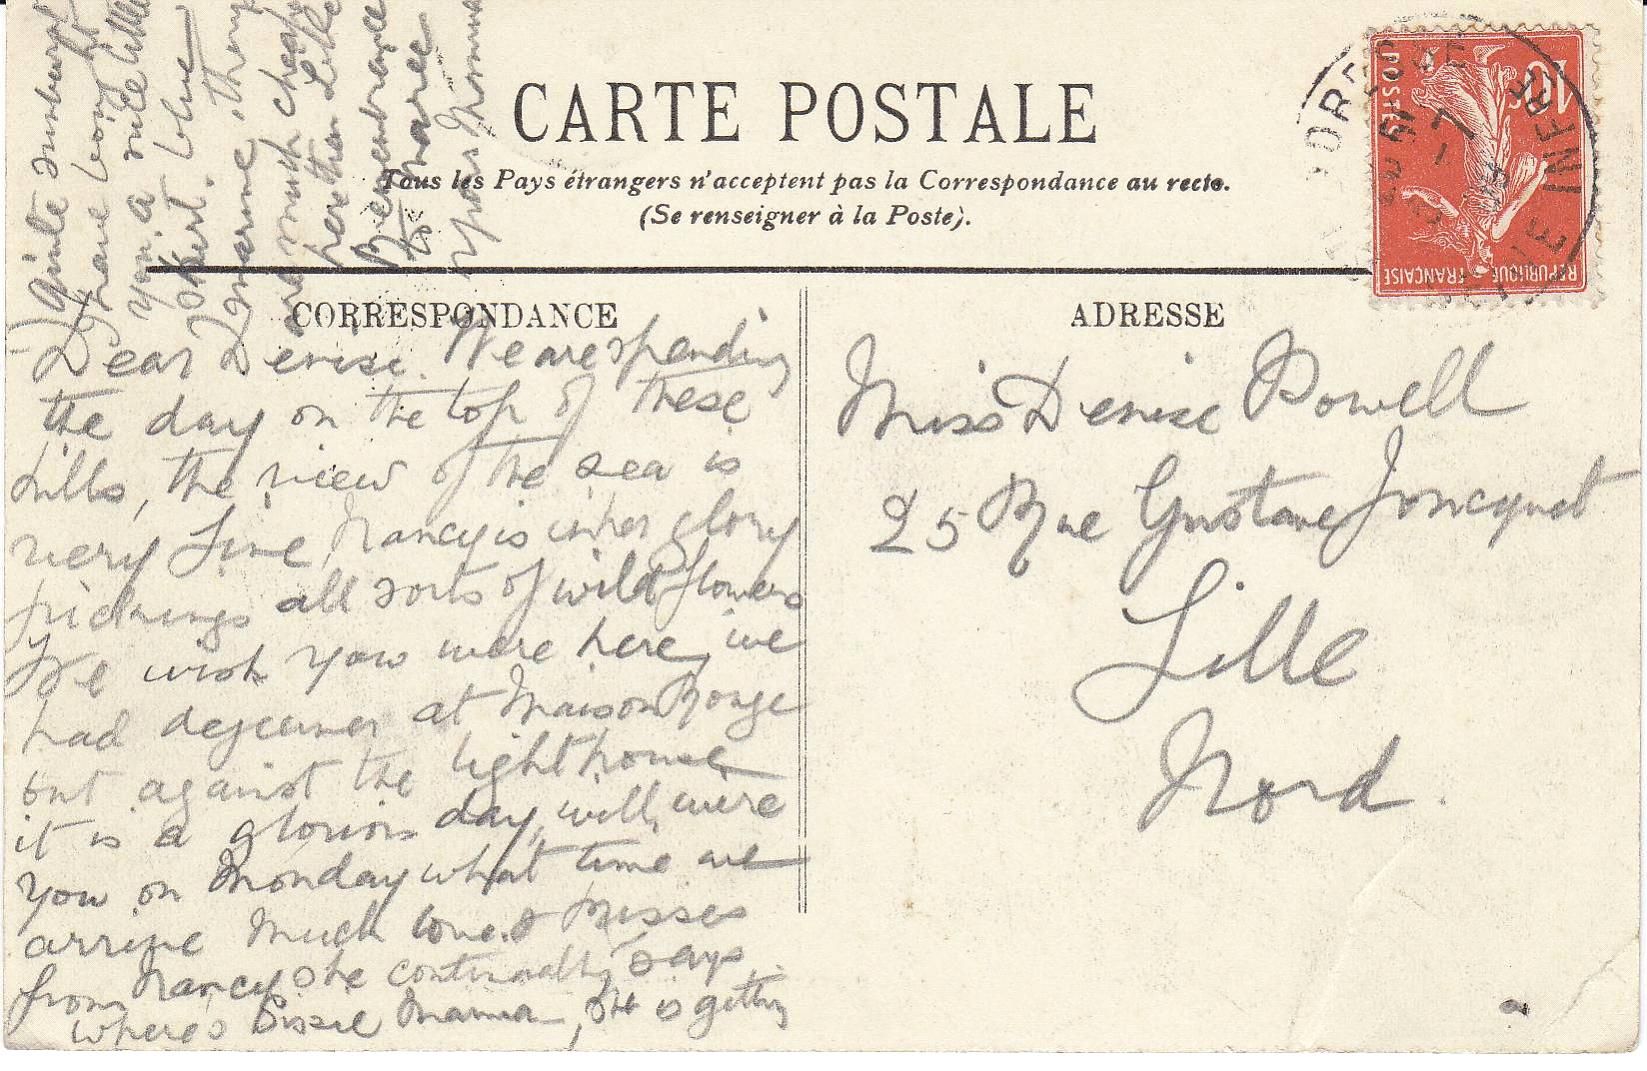 CARTE POSTALE
Tous les Pays étrangers n'acceptent pas la Correspondance au recto.
(Se renseigner à la Poste).
CORRESPONDANCE
Dear Denise. We are spending
the day on the top of these
hills, the view of the sea is
very fine, Nancy is in her glory
pickings all sorts of wild flowers
We wish you were here, we
had dejeuner at Maison Rouge
but against the lighthouse
it is a glorious day, will, wire
you on Monday what time we
arrive Much love & kisses
from Nancy she continually says
where's Sissie Mama, she is getting
quite sunburnt
I have bought
you a nice little
skirt. blue
marine, things
are much cheaper
here than Lille
Remembrances
to Marie
Your Momma
ADRESSE
Miss Denise Powell
25 Rue Gustave Joncquet
Lille
Nord.
10
POSTES
REPUBLIQUE FRANÇAISE
INFRE